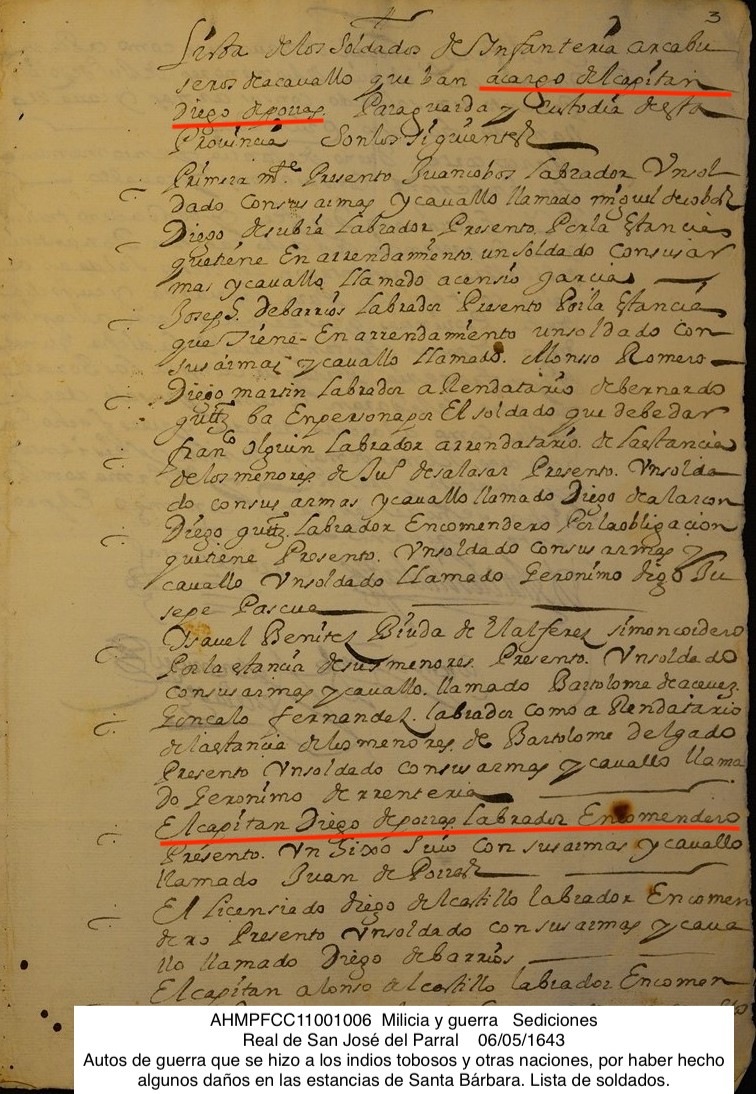 3
Lista de los Soldados de Infanteria arcabu
seros de acavallo que ban a cargo del capitan
Diego de porras Para guarda y custodia desta
Provincia Son los siguientes
Primera mte Presento Juan cobos labrador Un sol
dado con sus armas y cavallo llamado miguel de cobos
Diego de subia labrador Presento Por la estancia
que tiene En arrendamiento un soldado con sus ar
mas y cavallo llamado acensio garcia
Joseph S. de barrios labrador Presento Por la Estancia
que tiene En arrendamiento un soldado con
sus armas y cavallo llamado Alonsso Romero
Diego martin labrador a Rendatario de bernardo
gutrz ba En persona por El soldado que debe dar
franco olguin labrador arrendatario de la estancia
de los menores de Juo de salasar Presento Un solda
do con sus armas y cavallo llamado Diego de alarcon
Diego gutrz labrador Encomendero Por la obligacion
que tiene Presento Un soldado con sus armas y
cavallo Un soldado llamado Geronimo digo Ju
sepe Pascua
Ysavel Benites Biuda de El alferez simon cordero
Por la estancia de sus menores Presento Un soldado
con sus armas y cavallo llamado Bartolome de
Goncalo fernandez labrador como a Rendatario
de la estancia de los menores de Bartolome delgado
Presento Un soldado con sus armas y cavallo llama
do Geronimo de rrenteria
El capitan Diego de porras labrador Encomendero
Presento Un hixo suio con sus armas y cavallo
llamado Juan de Porras
El licensiado diego del castillo labrador Encomen
dero Presento Un soldado con sus armas y cava
llo llamado Diego de barrios
El capitan alonso del castillo labrador Encomen
AHMPFCC11001006 Milicia y guerra Sediciones
Real de San José del Parral 06/05/1643
Autos de guerra que se hizo a los indios tobosos y otras naciones, por haber hecho
algunos daños en las estancias de Santa Bárbara. Lista de soldados.